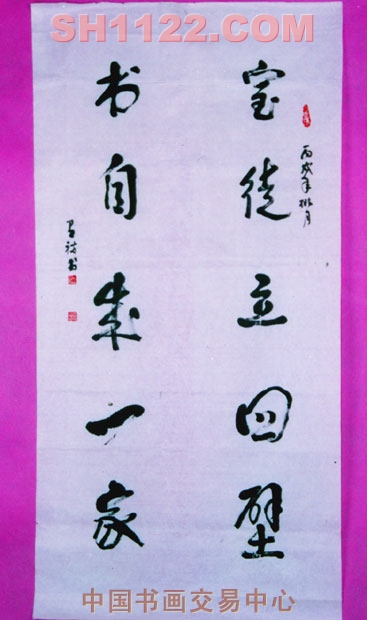 SH1122.COM
室徒立四壁
丙戌年桃月
书自成一家
中国书画交易中心